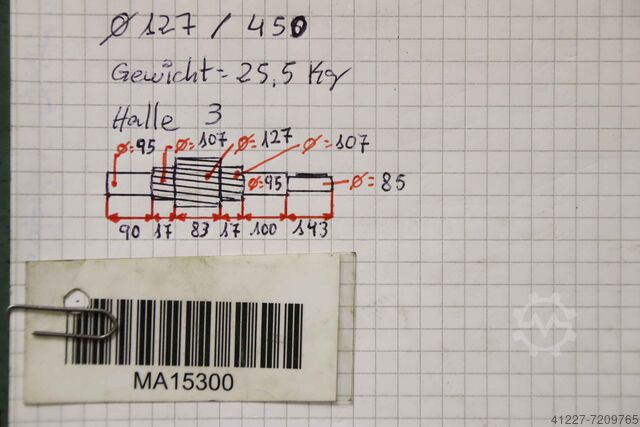 Ø 127 / 450
Gewicht = 25,5 Kg
Halle 3
Ø=95 Ø=107 Ø=127 Ø=107
Ø=95 Ø=85
90 17 83 17 100 143
MA15300
41227-7209765